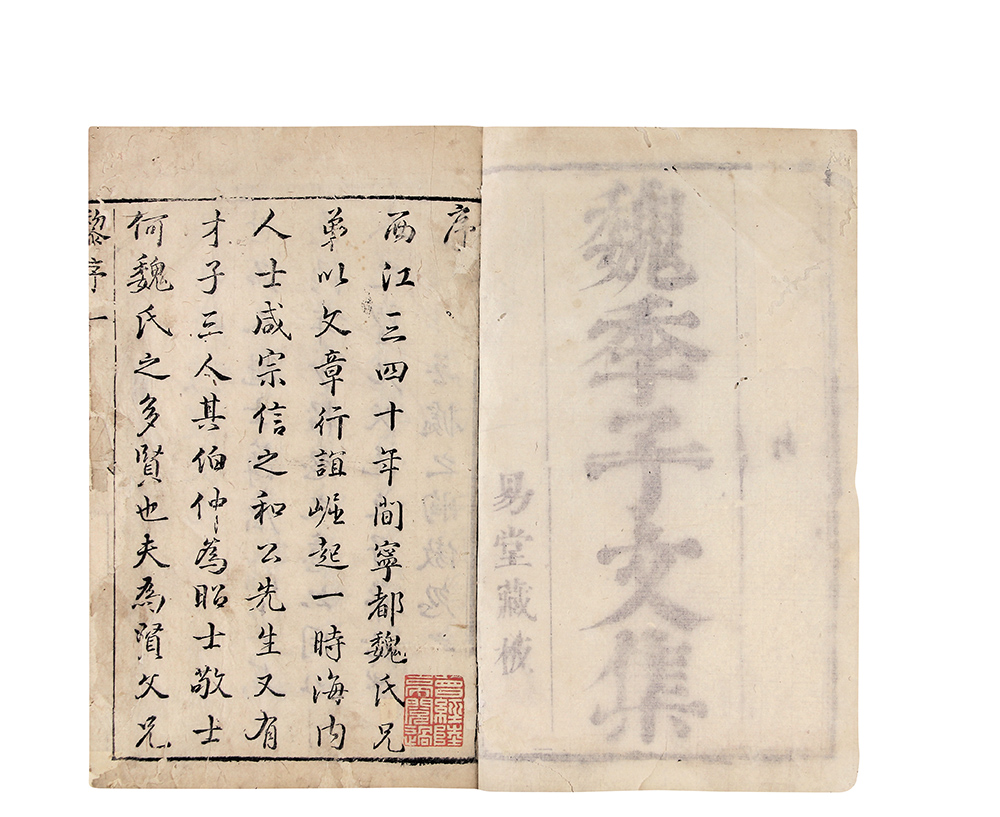 魏季子文集
易堂藏板
序
西江三四十年間寧都魏氏兄
弟以文章行誼崛起一時海内
人士咸宗信之和公先生又有
才子三人其伯仲為昭士敬士
何魏氏之多賢也夫為賢父兄
黎序 一